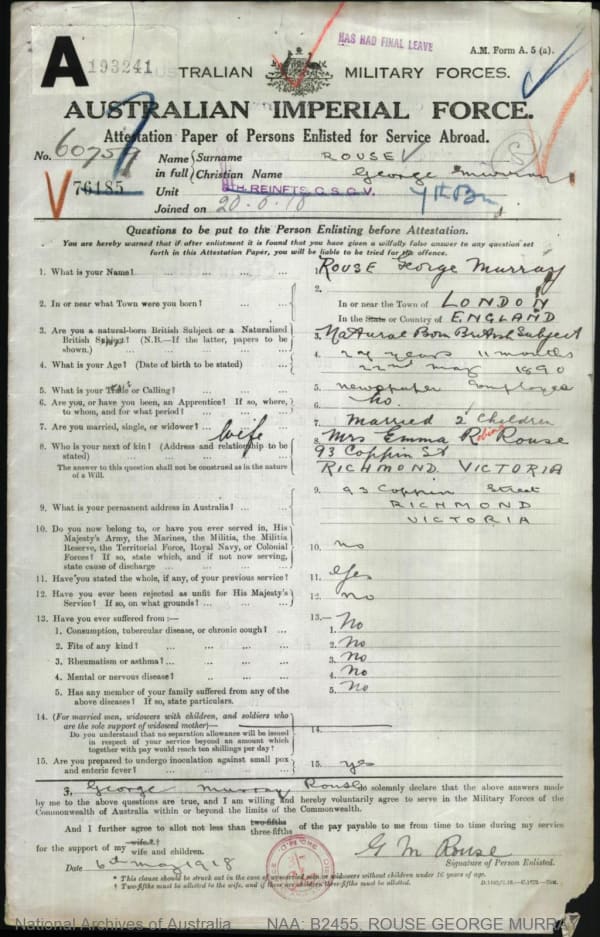 HAS HAD FINAL LEAVE
A.M. Form A. 5 (a).
A 193241
AUSTRALIAN MILITARY FORCES.
AUSTRALIAN IMPERIAL FORCE.
Attestation Paper of Persons Enlisted for Service Abroad.
No. 60757
76185
Name in full { Surname ROUSE
Christian Name George Murray
Unit REINFTS. G.S.O.V.
Joined on
Questions to be put to the Person Enlisting before Attestation.
You are hereby warned that if after enlistment it is found that you have given a wilfully false answer to any question set
forth in this Attestation Paper, you will be liable to be tried for the offence.
1. What is your Name? ... 1. Rouse George Murray
2. In or near what Town were you born? ... 2. In or near the Town of LONDON
In the State or Country of ENGLAND
3. Are you a natural-born British Subject or a Naturalised
British Subject? (N.B.—If the latter, papers to be
shown.) 3. Natural Born British Subject
4. What is your Age? (Date of birth to be stated) 4. 27 years 11 months
22nd May 1890
5. What is your Trade or Calling? ... 5. newspaper Employee
6. Are you, or have you been, an Apprentice? If so, where,
to whom, and for what period? ... 6. no.
7. Are you married, single, or widower? ... 7. Married 2 Children
8. Who is your next of kin? (Address and relationship to be
stated) wife 8. Mrs Emma Robina Rouse
93 Coppin St
RICHMOND VICTORIA
The answer to this question shall not be construed as in the nature
of a Will.
9. What is your permanent address in Australia? ... 9. 93 Coppin Street
RICHMOND
VICTORIA
10. Do you now belong to, or have you ever served in, His
Majesty's Army, the Marines, the Militia, the Militia
Reserve, the Territorial Force, Royal Navy, or Colonial
Forces? If so, state which, and if not now serving,
state cause of discharge ... 10. no
11. Have you stated the whole, if any, of your previous service? 11. Yes
12. Have you ever been rejected as unfit for His Majesty's
Service? If so, on what grounds? ... 12. no
13. Have you ever suffered from :— 13.—
1. Consumption, tubercular disease, or chronic cough? ... 1. No
2. Fits of any kind? ... 2. No
3. Rheumatism or asthma? ... 3. No
4. Mental or nervous disease? 4. No
5. Has any member of your family suffered from any of the
above diseases? If so, state particulars. 5. No
14. (For married men, widowers with children, and soldiers who
are the sole support of widowed mother)—
Do you understand that no separation allowance will be issued
in respect of your service beyond an amount which
together with pay would reach ten shillings per day? 14.
15. Are you prepared to undergo inoculation against small pox
and enteric fever? ... 15. yes
I, George Murray Rouse do solemnly declare that the above answers made
by me to the above questions are true, and I am willing and hereby voluntarily agree to serve in the Military Forces of the
Commonwealth of Australia within or beyond the limits of the Commonwealth.
And I further agree to allot not less than two-fifths three-fifths of the pay payable to me from time to time during my service
for the support of my wife † wife and children.
Date 6th May 1918
G M Rouse
Signature of Person Enlisted.
* This clause should be struck out in the case of unmarried men or widowers without children under 16 years of age.
† Two-fifths must be allotted to the wife, and if there are children three-fifths must be allotted.
National Archives of Australia NAA: B2455, ROUSE GEORGE MURRAY